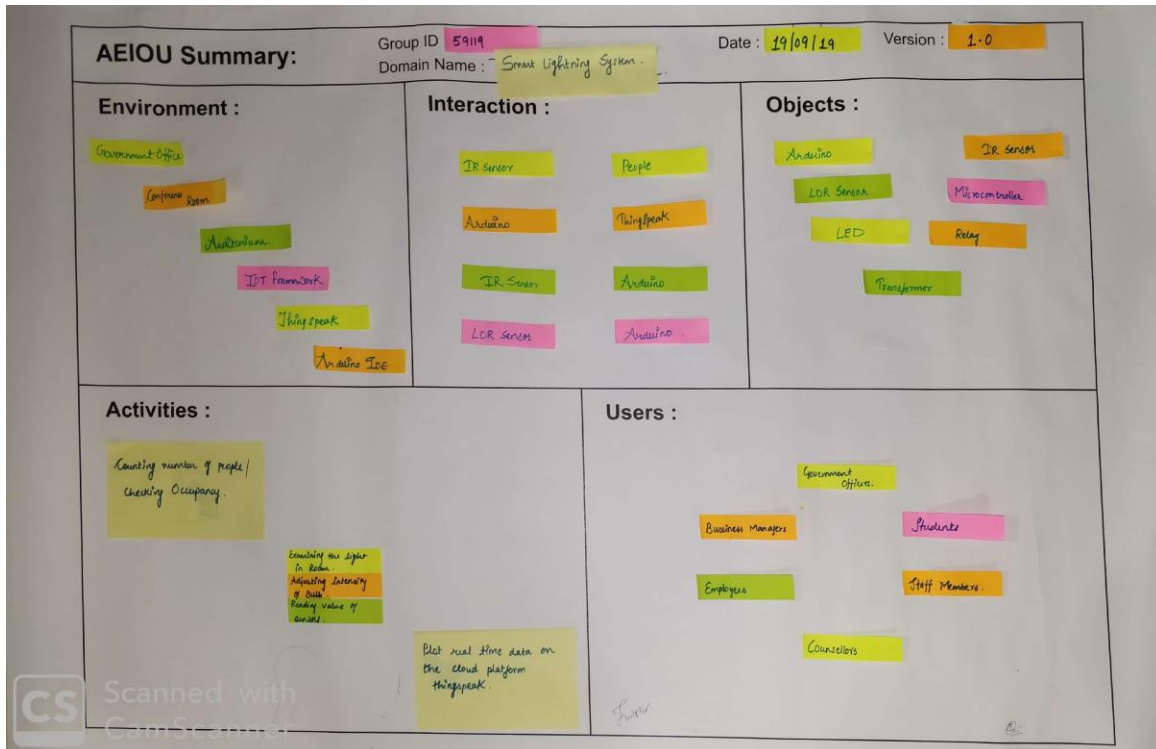 AEIOU Summary:
Group ID 59119
Domain Name : Smart Lightning System.
Date : 19/09/19
Version : 1.0
Environment :
Government Office
Conference
Room.
Auditorium.
IOT framework
Thingspeak
Arduino IDE
Interaction :
IR Sensor
People
Arduino
Thingspeak
IR Sensor
Arduino
LDR Sensor
Arduino.
Objects :
Arduino
IR Sensor
LDR Sensor
Microcontroller
LED
Relay
Transformer
Activities :
Counting number of people/
Checking Occupancy.
Examining the light
in Room.
Adjusting Intensity
of Bulb.
Reading value of
Plot real time data on
the cloud platform
thingspeak.
Users :
Government
Officers.
Bussiness Managers
Students
Employees
Staff Members.
Counsellors
CS Scanned with
CamScanner